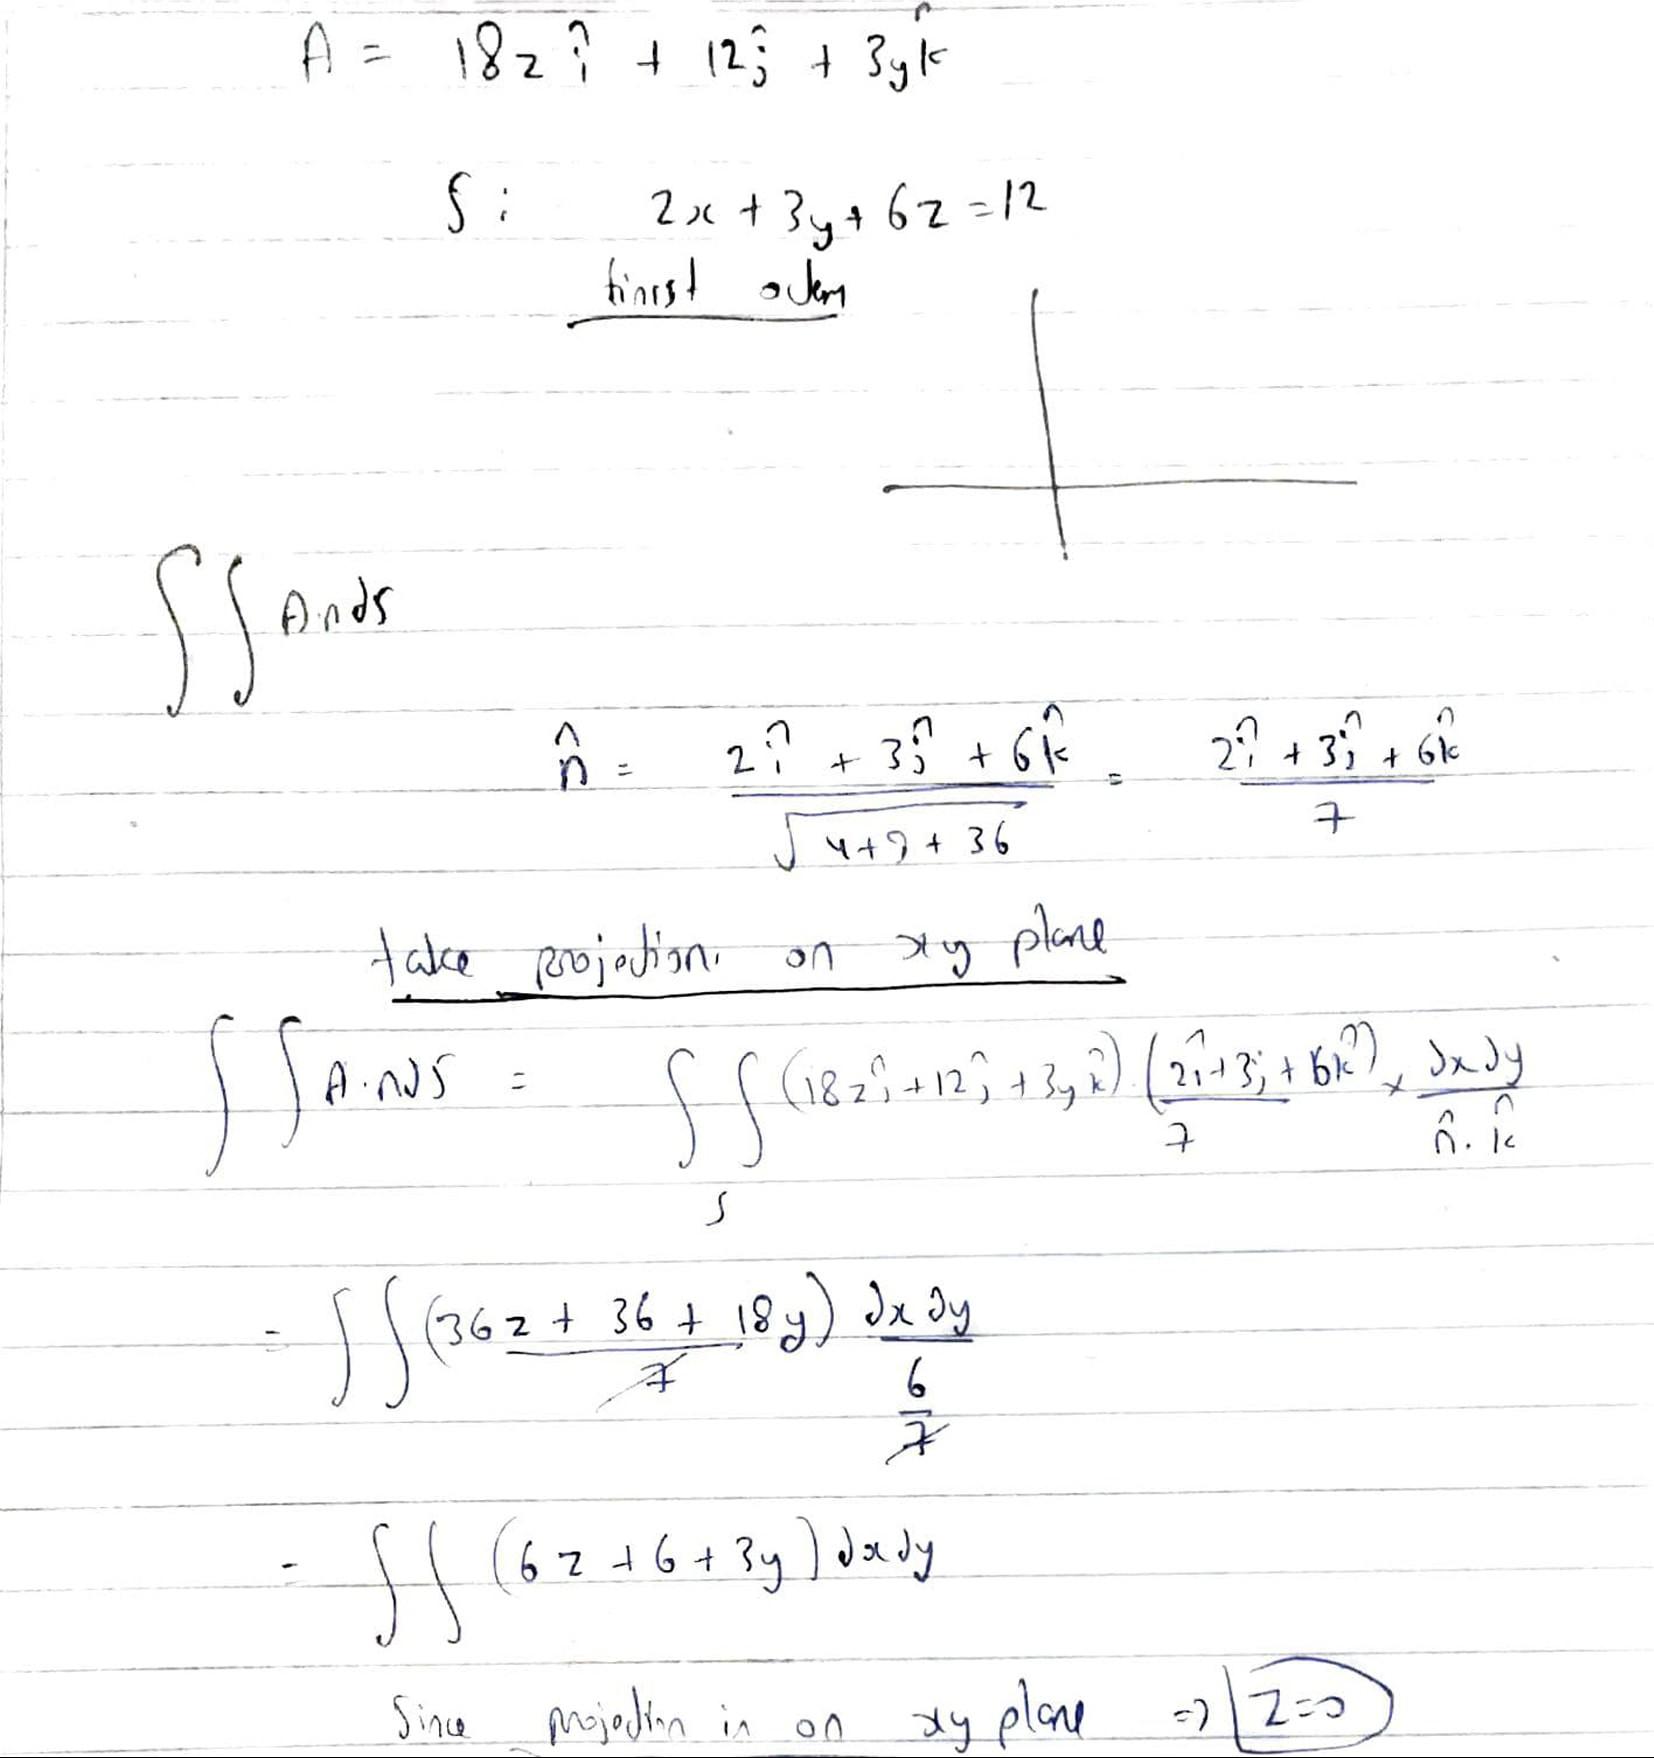 A = 18z î + 12ĵ + 3yk̂
S: 2x + 3y + 6z = 12
∬ A.nds
n̂ = (2î + 3ĵ + 6k̂) / √(4+9+36) = (2î + 3ĵ + 6k̂) / 7
take projection on xy plane
∬ A.nds = ∬_S (18zî + 12ĵ + 3yk̂).(2î + 3ĵ + 6k̂)/7 × dxdy / (n̂.k̂)
= ∬ (36z + 36 + 18y)/7 dxdy/(6/7)
= ∬ (6z + 6 + 3y) dxdy
Since projection is on xy plane => z=0